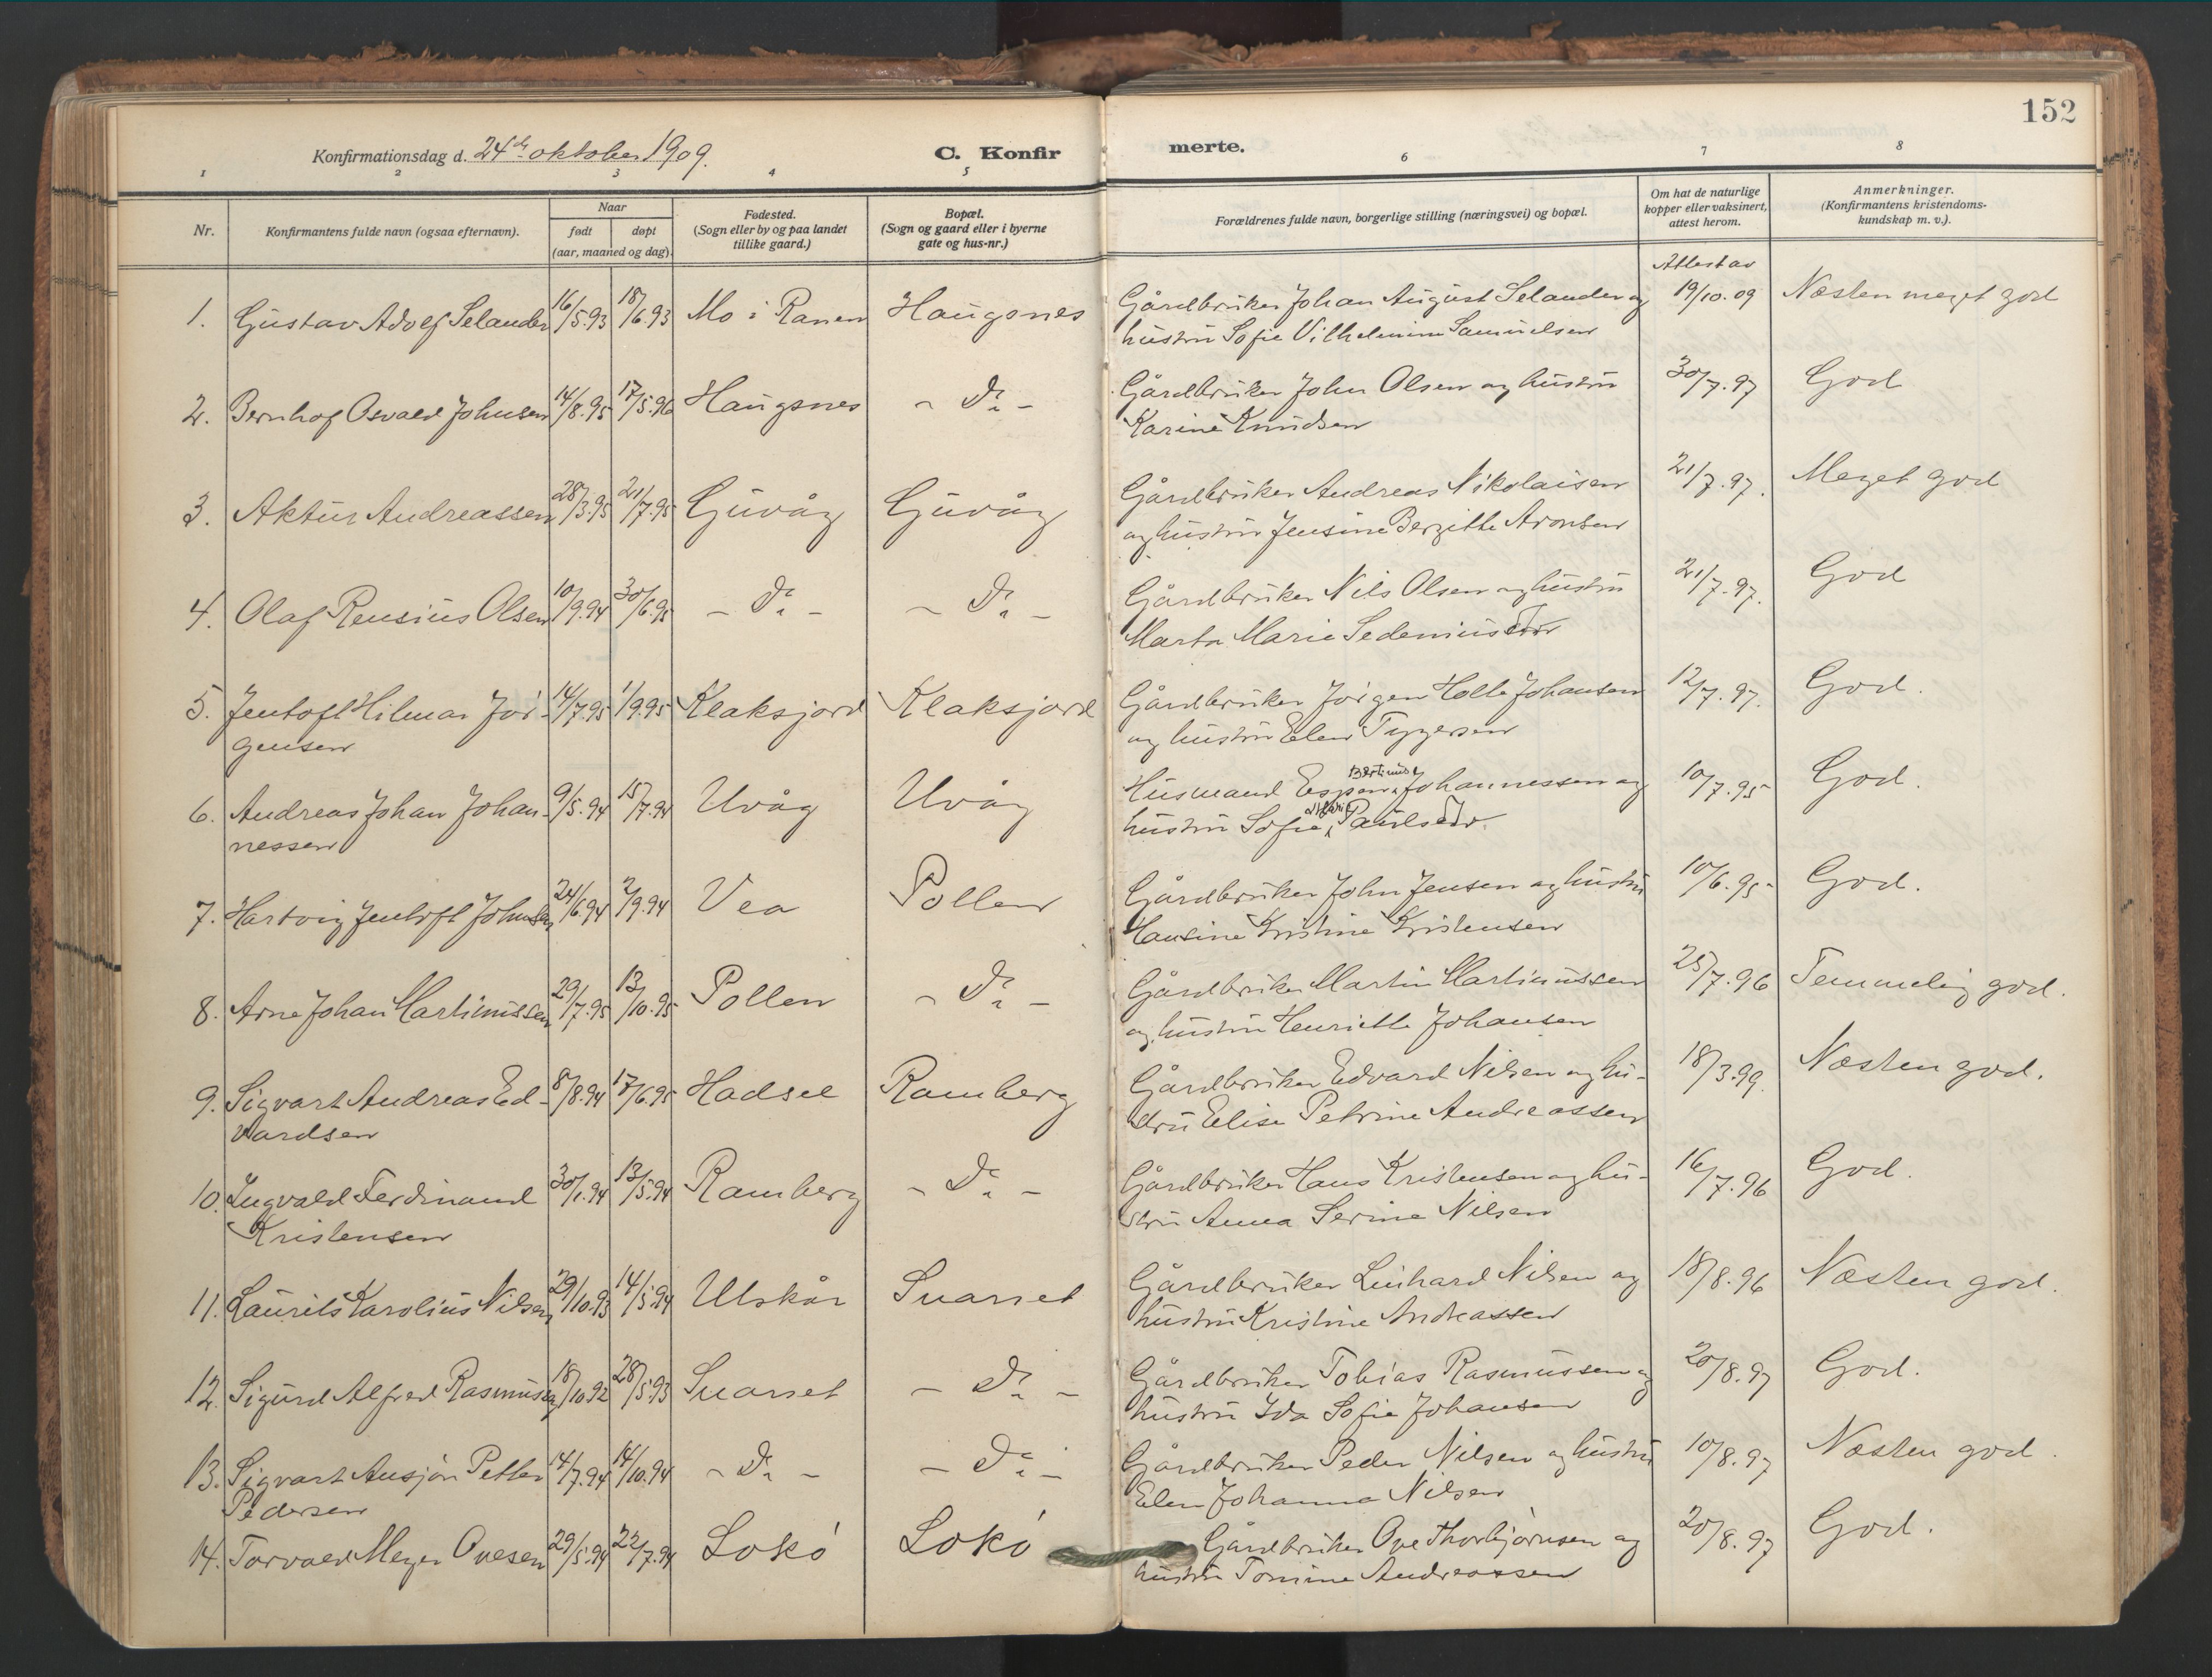 152
Konfirmationsdag d. 24de oktober 1909. C. Konfirmerte.
1 2 3 4 5 6 7 8
Nr. Konfirmantens fulde navn (ogsaa efternavn). Naar født døpt (aar, maaned og dag). Fødested. (Sogn eller by og paa landet tillike gaard.) Bopæl. (Sogn og gaard eller i byerne gate og hus-nr.) Forældrenes fulde navn, borgerlige stilling (næringsvei) og bopæl. Om hat de naturlige kopper eller vaksinert, attest herom. Anmerkninger. (Konfirmantens kristendomskundskap m. v.).
Attest av
1. Gustav Adolf Selander 16/5.93 18/6.93 Mo i Ranen Haugsnes Gårdbruker Johan August Selander og 19/10.09 Næsten meget god
hustru Sofie Vilhelmine Samuelsen
2. Bernhof Osvald Johnsen 14/8.95 17/5.96 Haugsnes - Do - Gårdbruker John Olsen og hustru 30/7.97 God
Karine Knudsen
3. Aktur Andreassen 28/3.95 21/7.95 Guvåg Guvåg Gårdbruker Andreas Nikolaisen 21/7.97. Meget god
og hustru Jensine Bergitte Aronsen
4. Olaf Rensius Olsen 10/9.94 30/6.95 - Do - - Do - Gårdbruker Nils Olsen og hustru 21/7.97. God
Marta Marie Sedenius
5. Jentoft Hilmar Jör- 14/7.95 1/9.95 Klaksjord Klaksjord Gårdbruker Jörgen Holte Johansen 12/7.97. God.
gensen og hustru Elen Tygesen
6. Andreas Johan Johan- 9/5.94 15/7.94 Uvåg Uvåg Husmand Espen Bertinus Johannessen og 10/7.95 God.
nessen hustru Sofie Marie Paulsdtr.
7. Hartvig Jentoft Johnsen 24/6.94 2/9.94 Vea Pollen Gårdbruker John Jensen og hustru 10/6.95 God.
Hansine Kristine Kristensen
8. Arne Johan Martinussen 29/7.95 13/10.95 Pollen - Do - Gårdbruker Martin Martinussen 25/7.96 Temmelig god.
og hustru Henriette Johansen
9. Sigvart Andreas Ed- 8/8.94 17/6.95 Hadsel Ramberg Gårdbruker Edvard Nilsen og hu- 18/3.99. Næsten god.
vardsen stru Elise Petrine Andreassen
10. Ingvald Ferdinand 30/1.94 13/5.94 Ramberg - Do - Gårdbruker Hans Kristensen og hu- 16/7.96 God.
Kristensen stru Anna Serine Nilsen
11. Laurits Karolius Nilsen 29/10.93 14/5.94 Ulskår Suarset Gårdbruker Linhard Nilsen og 18/8.96 Næsten god.
hustru Kristine Andreassen
12. Sigurd Alfred Rasmussen 18/10.92 28/5.93 Suarset - Do - Gårdbruker Tobias Rasmussen og 20/8.97 God.
hustru Ida Sofie Johansen
13. Sigvart Ansjön Petter 14/7.94 14/10.94 - Do - - Do - Gårdbruker Peder Nilsen og hustru 10/8.97 Næsten god.
Pedersen Elen Johanna Nilsen
14. Torvald Meyer Ovesen 29/5.94 22/7.94 Lokö Lokö Gårdbruker Ove Thorbjörnsen og 20/8.97 God.
hustru Tomine Andreassen